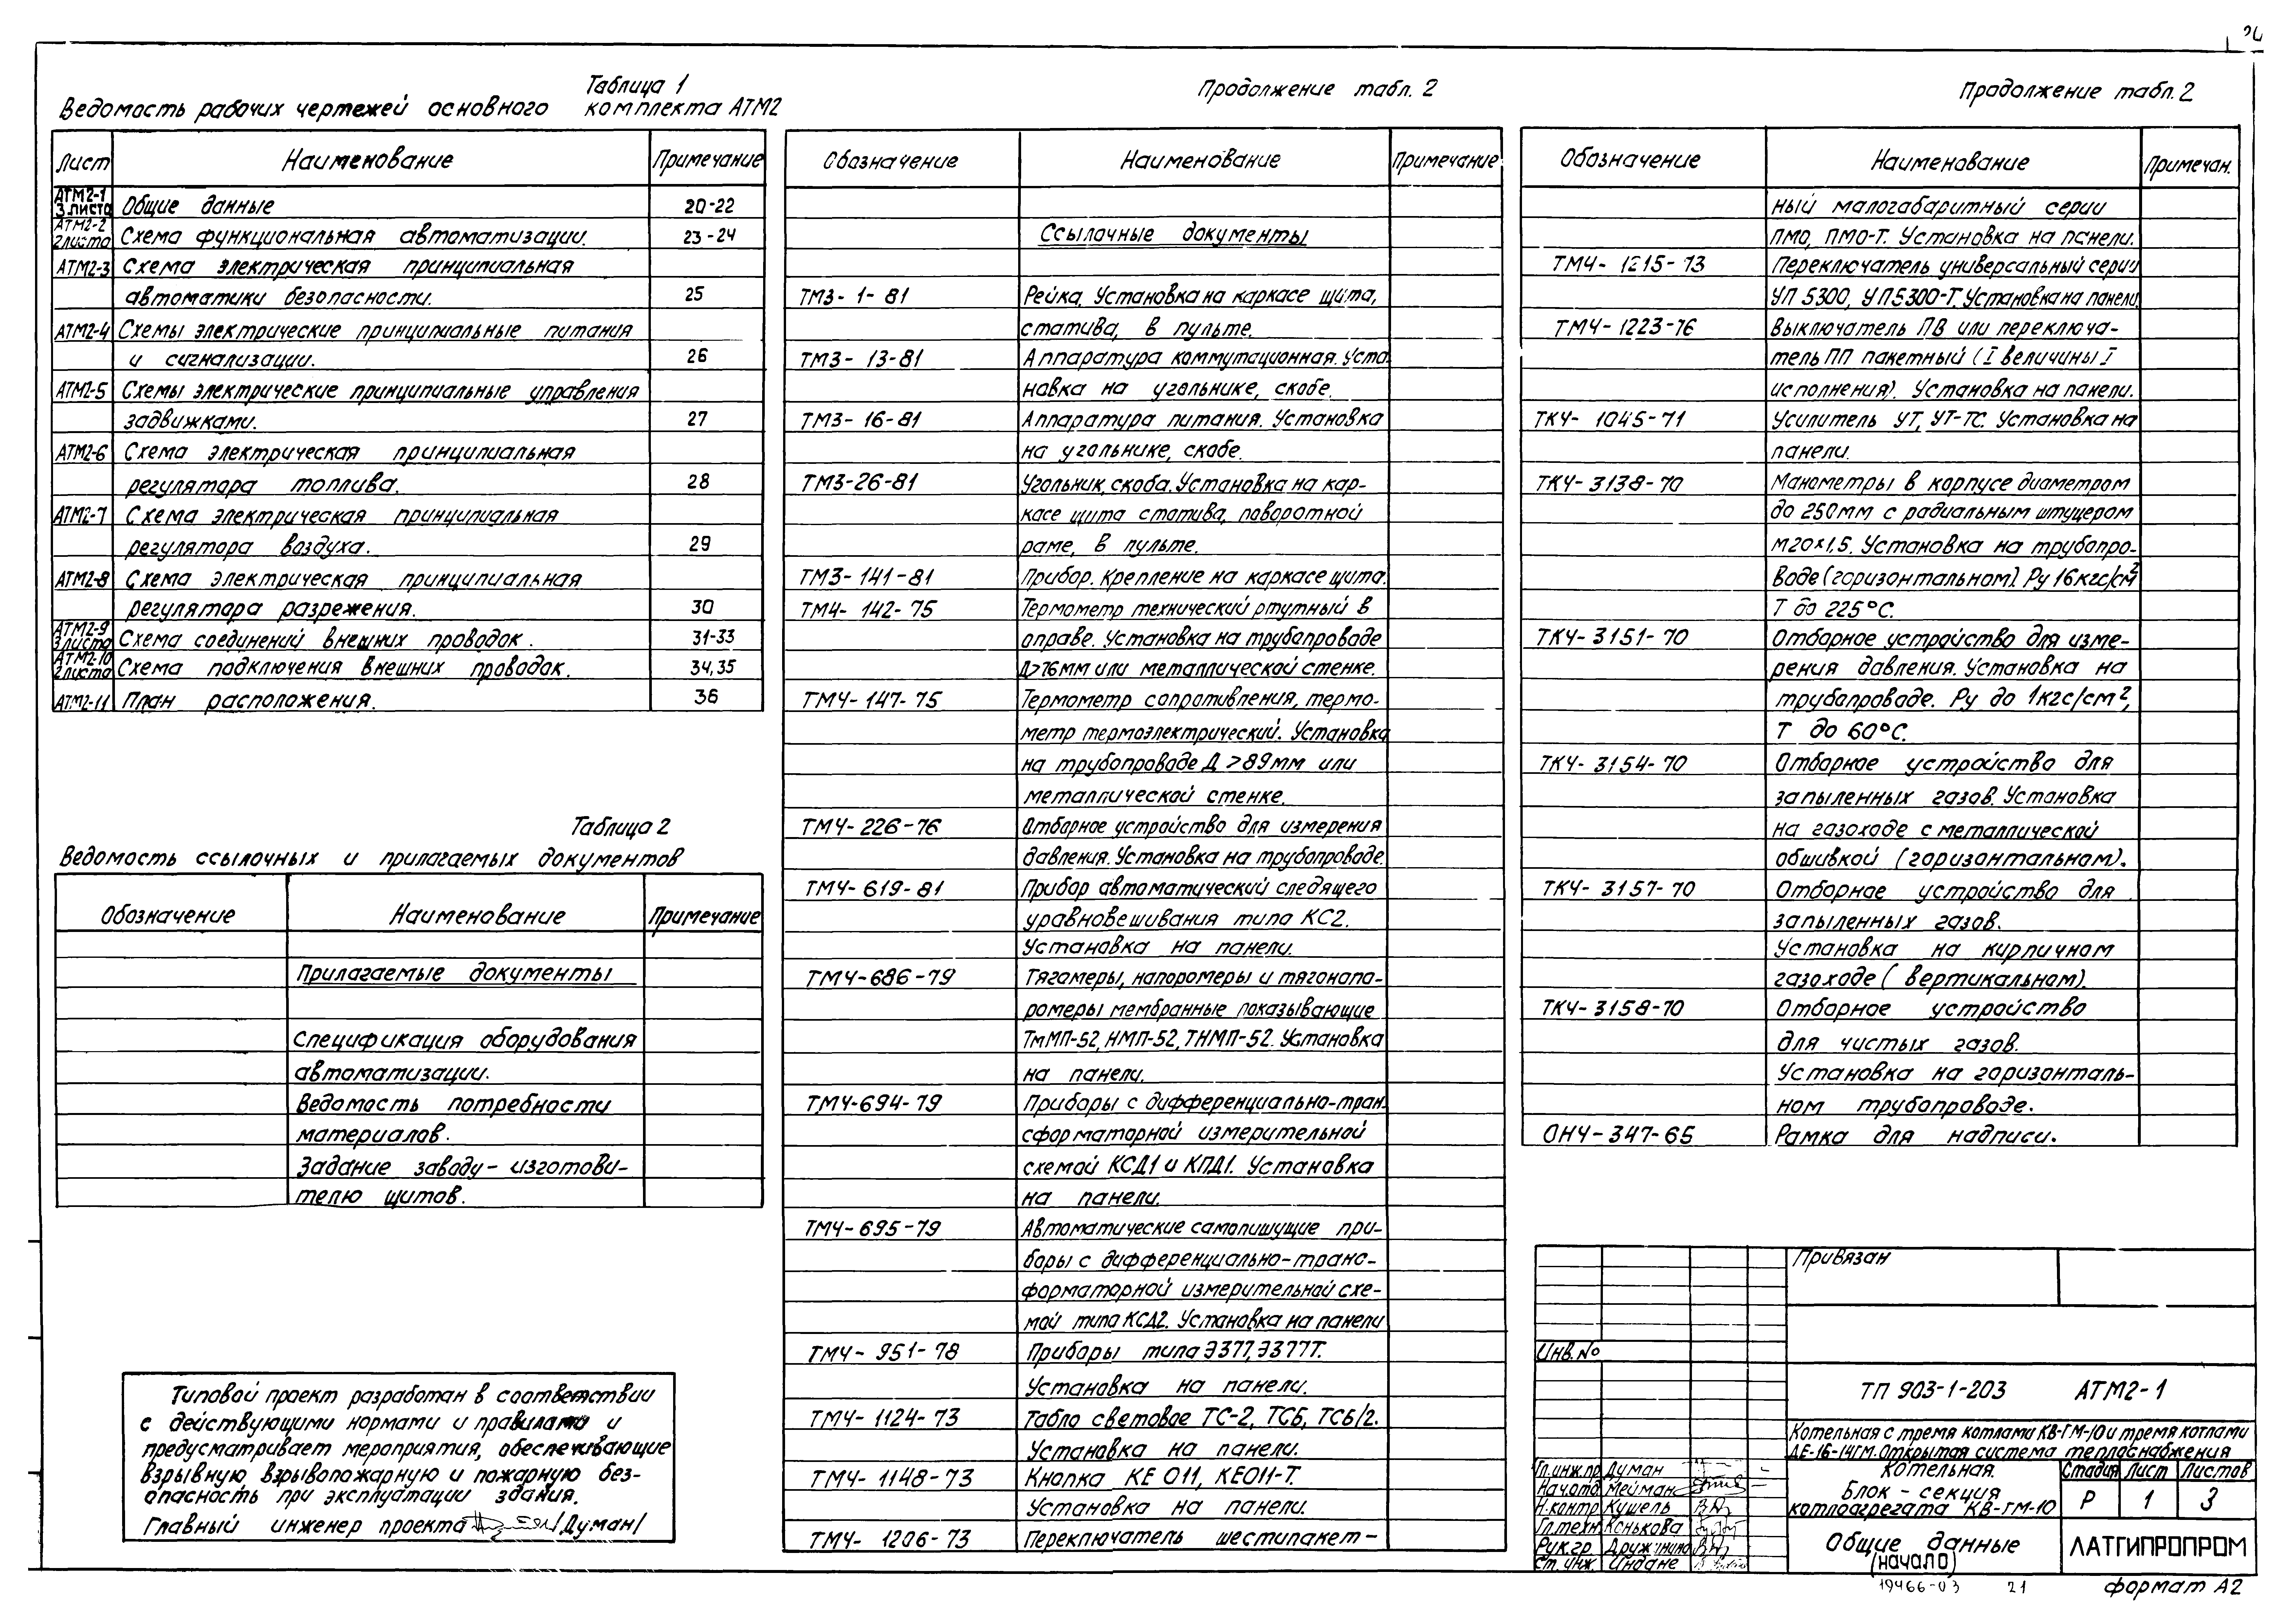 Таблица 1
Ведомость рабочих чертежей основного комплекта АТМ2
Лист Наименование Примечание
АТМ2-1 3 листа Общие данные 20-22
АТМ2-2 2 листа Схема функциональная автоматизации. 23-24
АТМ2-3 Схема электрическая принципиальная
автоматики безопасности. 25
АТМ2-4 Схемы электрические принципиальные питания
и сигнализации. 26
АТМ2-5 Схемы электрические принципиальные управления
задвижками. 27
АТМ2-6 Схема электрическая принципиальная
регулятора топлива. 28
АТМ2-7 Схема электрическая принципиальная
регулятора воздуха. 29
АТМ2-8 Схема электрическая принципиальная
регулятора разрежения. 30
АТМ2-9 3 листа Схема соединений внешних проводок. 31-33
АТМ2-10 2 листа Схема подключения внешних проводок. 34,35
АТМ2-11 План расположения. 36
Таблица 2
Ведомость ссылочных и прилагаемых документов
Обозначение Наименование Примечание
Прилагаемые документы
Спецификация оборудования
автоматизации.
Ведомость потребности
материалов.
Задание заводу-изготови-
телю щитов.
Типовой проект разработан в соответствии
с действующими нормами и правилами и
предусматривает мероприятия, обеспечивающие
взрывную, взрывопожарную и пожарную без-
опасность при эксплуатации здания.
Главный инженер проекта /Думан/
Продолжение табл. 2
Обозначение Наименование Примечание
Ссылочные документы
ТМ3-1-81 Рейка. Установка на каркасе щита,
статива, в пульте.
ТМ3-13-81 Аппаратура коммутационная. Уста
навка на угольнике, скобе.
ТМ3-16-81 Аппаратура питания. Установка
на угольнике, скобе.
ТМ3-26-81 Угольник, скоба. Установка на кар-
касе щита статива, поворотной
раме, в пульте.
ТМ3-141-81 Прибор. Крепление на каркасе щита.
ТМ4-142-75 Термометр технический ртутный в
оправе. Установка на трубопроводе
Д>76мм или металлической стенке.
ТМ4-147-75 Термометр сопротивления, термо-
метр термоэлектрический. Установка
на трубопроводе Д >89мм или
металлической стенке.
ТМ4-226-76 Отборное устройство для измерения
давления. Установка на трубопроводе.
ТМ4-619-81 Прибор автоматический следящего
уравновешивания типа КС2.
Установка на панели.
ТМ4-686-79 Тягомеры, напоромеры и тягонапо-
ромеры мембранные показывающие
ТмМП-52, НМП-52, ТНМП-52. Установка
на панели.
ТМ4-694-79 Приборы с дифференциально-тран-
сформаторной измерительной
схемой КСД1 и КПД1. Установка
на панели.
ТМ4-695-79 Автоматические самопишущие при-
боры с дифференциально-транс-
форматорной измерительной схе-
мой типа КСД2. Установка на панели
ТМ4-951-78 Приборы типа Э377, Э377Т.
Установка на панели.
ТМ4-1124-73 Табло световое ТС-2, ТСБ, ТСБ/2.
Установка на панели.
ТМ4-1148-73 Кнопка КЕ 011, КЕ011-Т.
Установка на панели.
ТМ4-1206-73 Переключатель шестипакет-
Продолжение табл. 2
Обозначение Наименование Примечан.
ный малогабаритный серии
ПМО, ПМО-Т. Установка на панели.
ТМ4-1215-73 Переключатель универсальный серии
УП 5300, УП5300-Т. Установка на панели.
ТМ4-1223-76 Выключатель ПВ или переключа-
тель ПП пакетный (I величины I
исполнения). Установка на панели.
ТК4-1045-71 Усилитель УТ, УТ-ТС. Установка на
панели.
ТК4-3138-70 Манометры в корпусе диаметром
до 250мм с радиальным штуцером
М20×1,5. Установка на трубопро-
воде (горизонтальном). Ру 16кгс/см²
Т до 225°С.
ТК4-3151-70 Отборное устройство для изме-
рения давления. Установка на
трубопроводе. Ру до 1кгс/см²,
Т до 60°С.
ТК4-3154-70 Отборное устройство для
запыленных газов. Установка
на газоходе с металлической
обшивкой (горизонтальном).
ТК4-3157-70 Отборное устройство для
запыленных газов.
Установка на кирпичном
газоходе (вертикальном).
ТК4-3158-70 Отборное устройство
для чистых газов.
Установка на горизонталь-
ном трубопроводе.
ОН4-347-65 Рамка для надписи.
Привязан
Инв.№
ТП 903-1-203 АТМ2-1
Котельная с тремя котлами КВ-ГМ-10 и тремя котлами
ДЕ-16-14ГМ. Открытая система теплоснабжения
Гл.инж.пр. Думан
Нач.отд. Мейман
Н.контр. Кушель
Гл.техн. Конькова
Рук.гр. Дружинина
Ст. инж. Индане
Котельная.
Блок-секция
котлоагрегата КВ-ГМ-10
Стадия Лист Листов
Р 1 3
Общие данные
(начало)
ЛАТГИПРОПРОМ
19466-03 21
формат А2